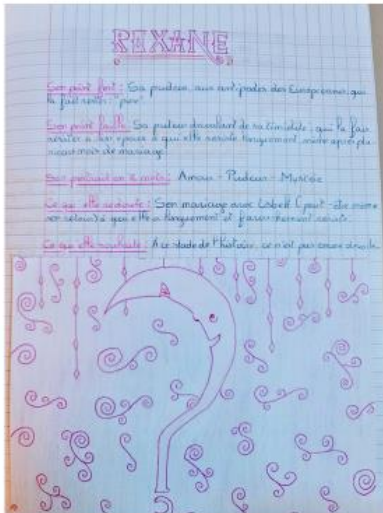 ROXANE
Son point fort : Sa pudeur, aux antipodes des Européennes, qui
la fait rester pure.
Son point faible : Sa pudeur découlant de sa timidité, qui la fait
résister à son époux à qui elle résiste longuement même après plu-
sieurs mois de mariage.
Amour - Pudeur - Mystère
Ce qu'elle redoute : Son mariage avec Usbek (peut-être même
qui elle a longuement et
Ce qu'elle souhaite : A ce stade de l'histoire, ce n'est pas encore